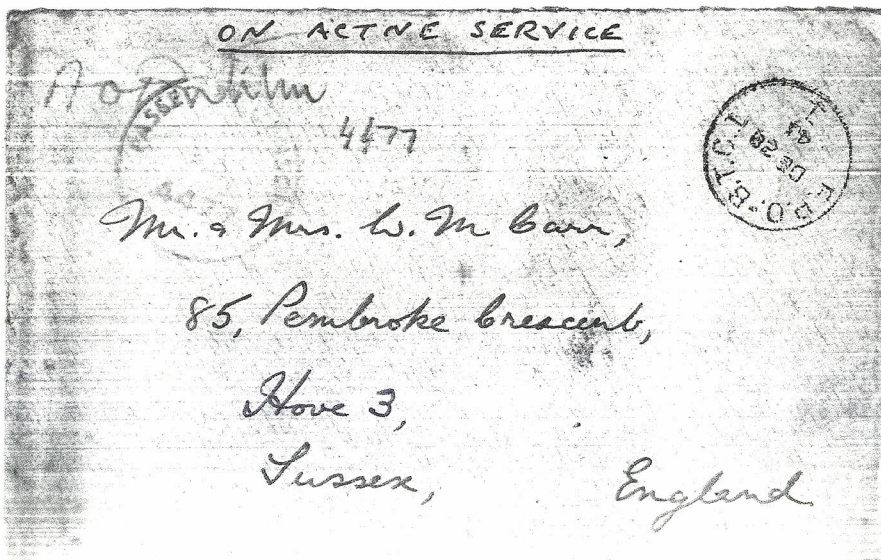 ON ACTIVE SERVICE
PASSED
4477
F.P.O. B.T.C.1
DE 28
41
Mr. & Mrs. W. M Carr,
85, Pembroke Crescent,
Hove 3,
Sussex,
England